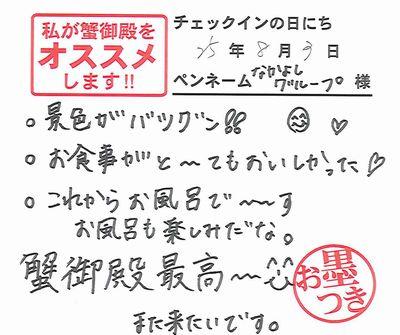 私が蟹御殿を
オススメ
します!!
チェックインの日にち
25年8月9日
ペンネーム なかよしグループ。 様
。景色がバツグン!!
。お食事がと〜てもおいしかった♡
。これからお風呂で〜〜す
お風呂も楽しみだな。
蟹御殿最高〜
また来たいです。
お墨つき